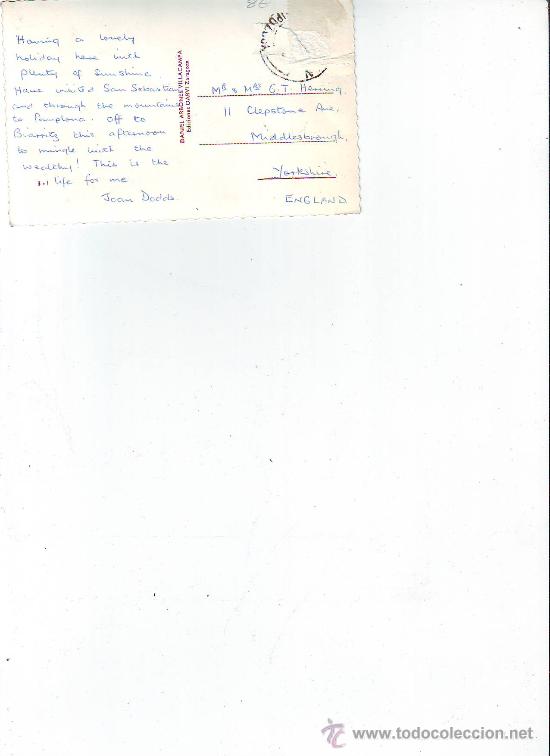 8E
Having a lovely
holiday here with
plenty of sunshine
Have visited San Sebastian
and through the mountains
to Pamplona. Off to
Biarritz this afternoon
to mingle with the
wealthy! This is the
life for me
Joan Dodds
DANIEL ARBONES VILLACAMPA
Ediciones DARVI Zaragoza
Mr & Mrs G.T. Herring
11 Clepstone Ave.
Middlesbrough,
Yorkshire.
ENGLAND
www.todocoleccion.net